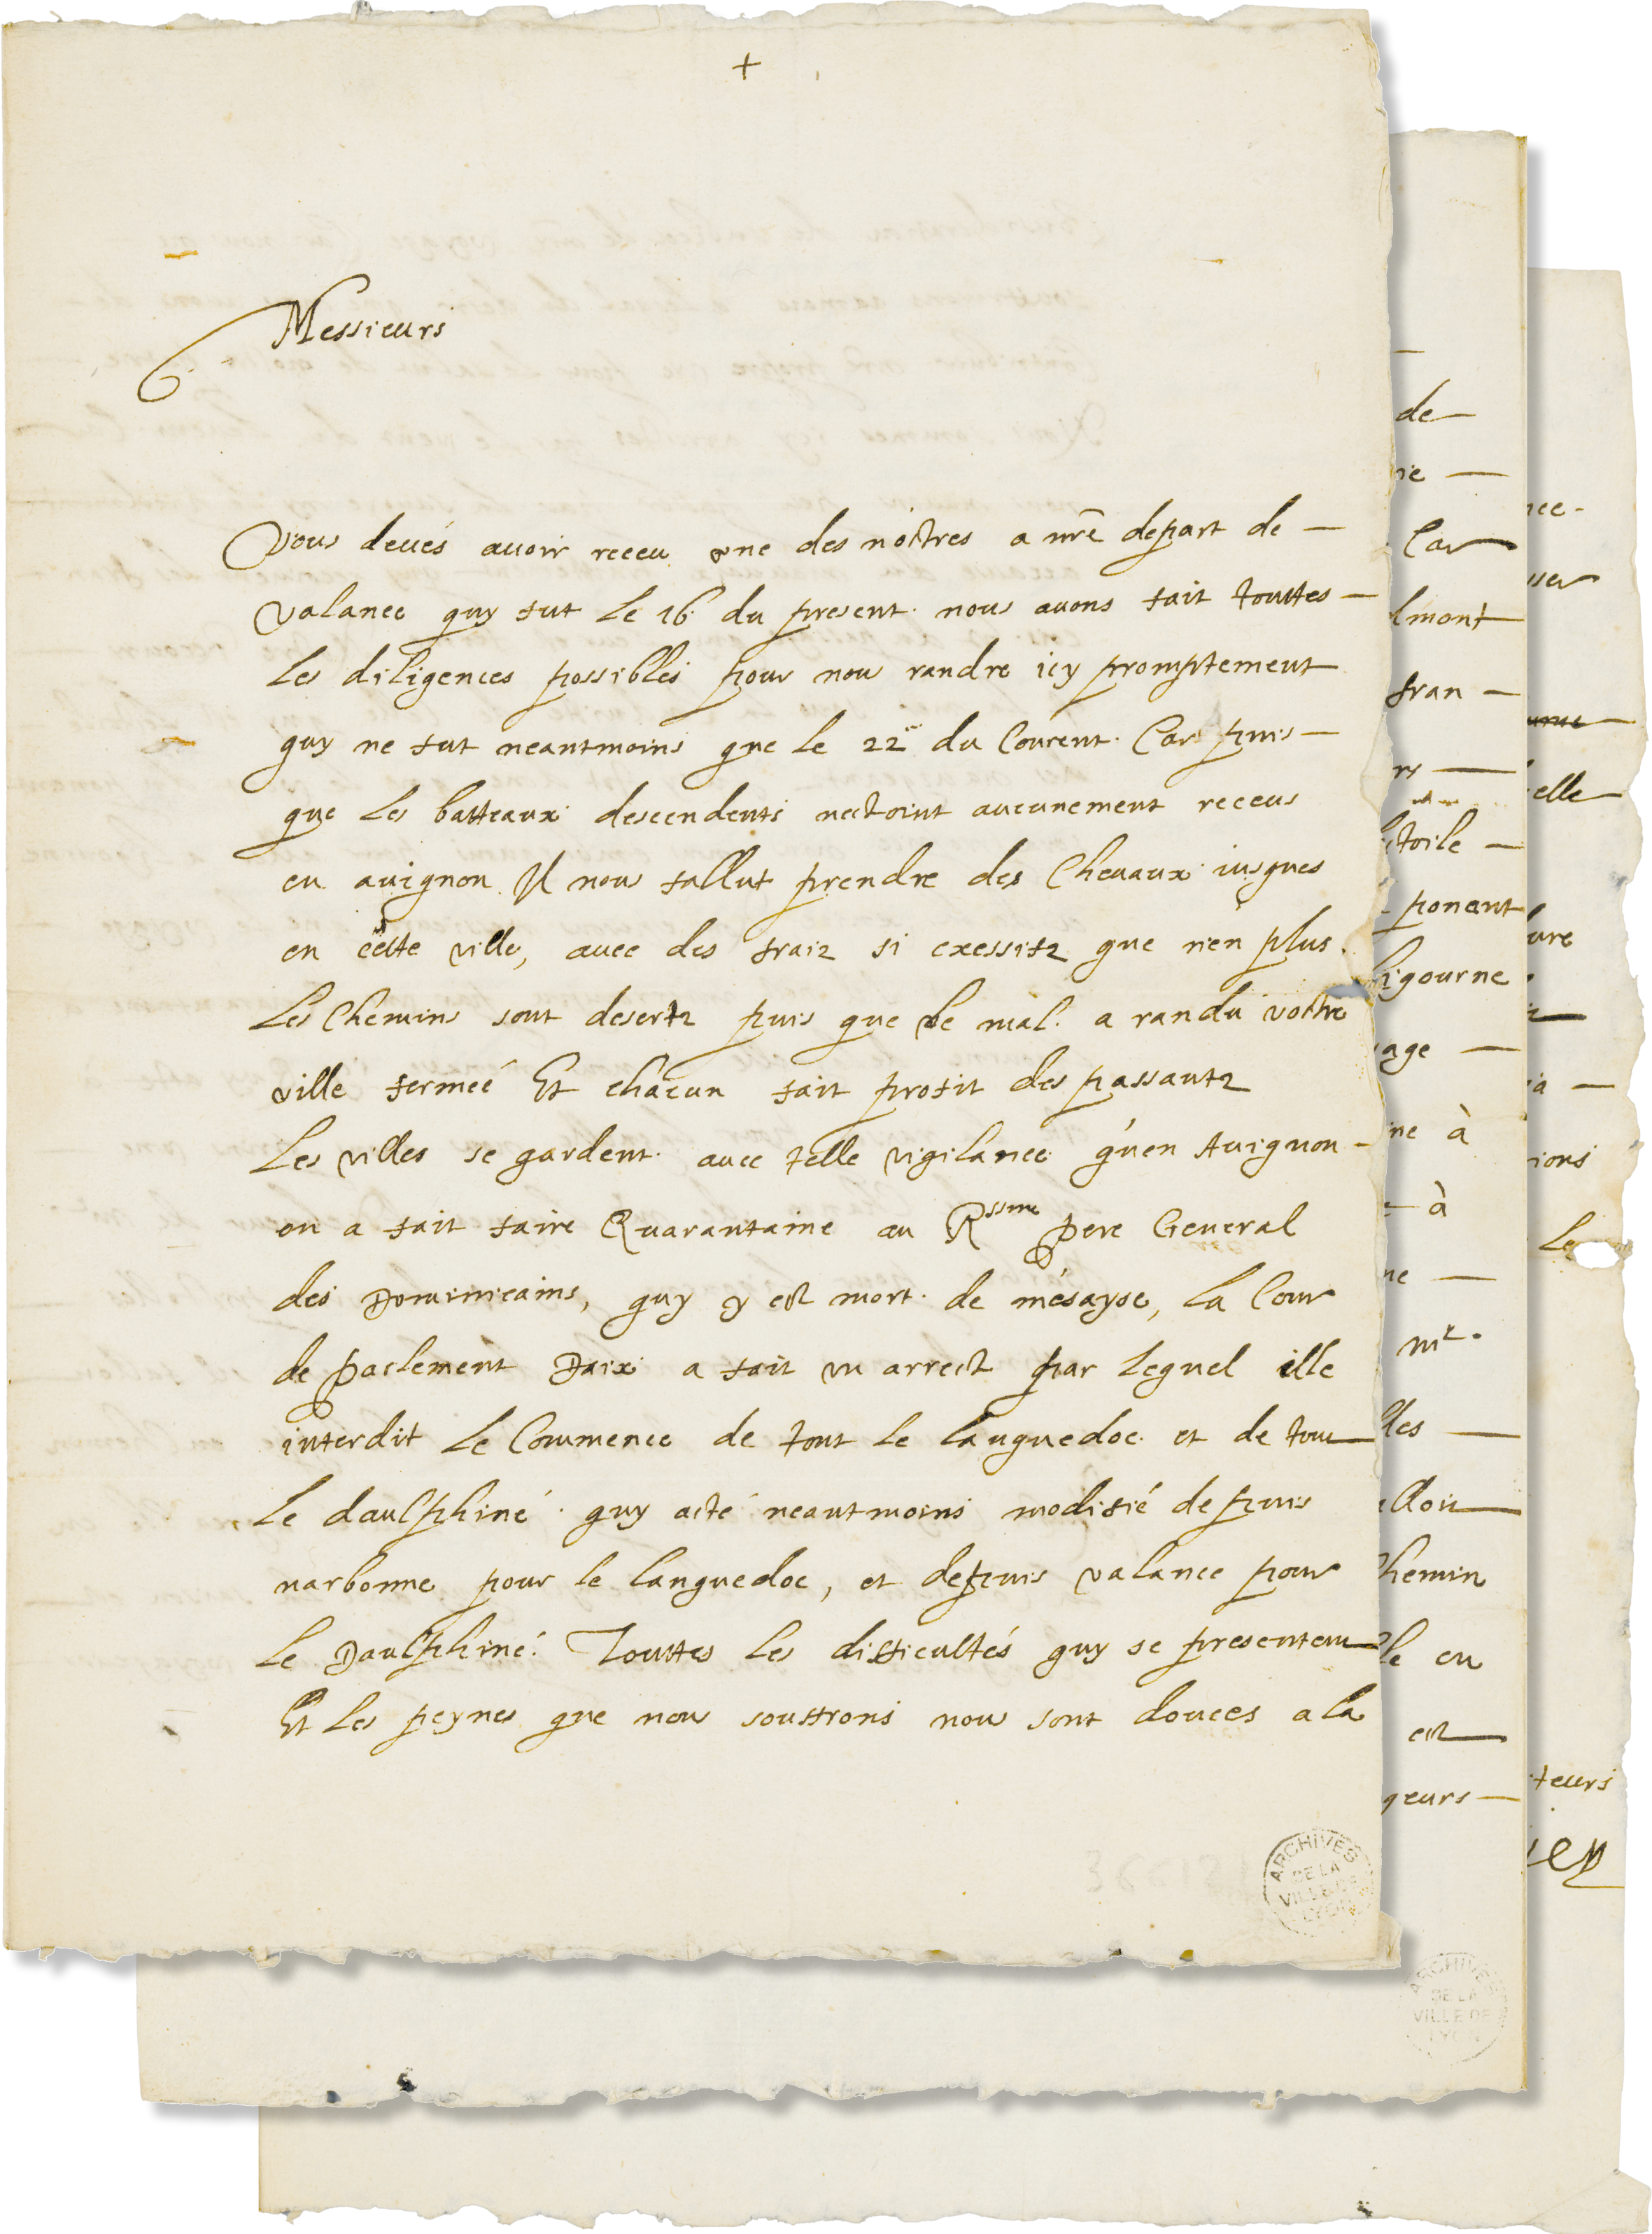 +
Messieurs
Vous deués auoir receu vne des nostres a nr̃e depart de —
valance quy fut le 16 du present. nous auons fait touttes —
les diligences possibles pour nous randre icy promptement
quy ne fut neantmoins que le 22e du Courent. Car puis —
que les batteaux descendents nectoint aucunement receus
en auignon Il nous fallut prendre des Cheuaux iusques
en cette ville, auec des fraiz si exessifz que rien plus.
Les Chemins sont desertz puis que le mal. a randu vostre
ville fermeé Et chacun fait profit des passantz
Les villes se gardent. auec telle vigilance qu'en Auignon —
on a fait faire Quarantaine au Rssme Pere General
des Dominicains, quy y est mort. de mésayse, La Cour
de Parlement Daix a fait vn arrest par lequel ille
interdit le Commence de tout le languedoc. et de tout
le daulphiné. quy acté neantmoins modifié depuis
narbonne pour le languedoc, et depuis valance pour
le Daulphiné. Touttes les difficultés quy se presentent
Et les peynes que nous souffrons nous sont douces a la
ARCHIVES
DE LA
VILLE DE
LYON
de —
Car
lmont
fran —
rs —
toile —
ponant
ligourne
age —
ne à
à
ne —
mr.
les —
hemin
le en
est
geurs —
ARCHIVES
DE LA
VILLE DE
LYON
elle
ions
Le
teurs